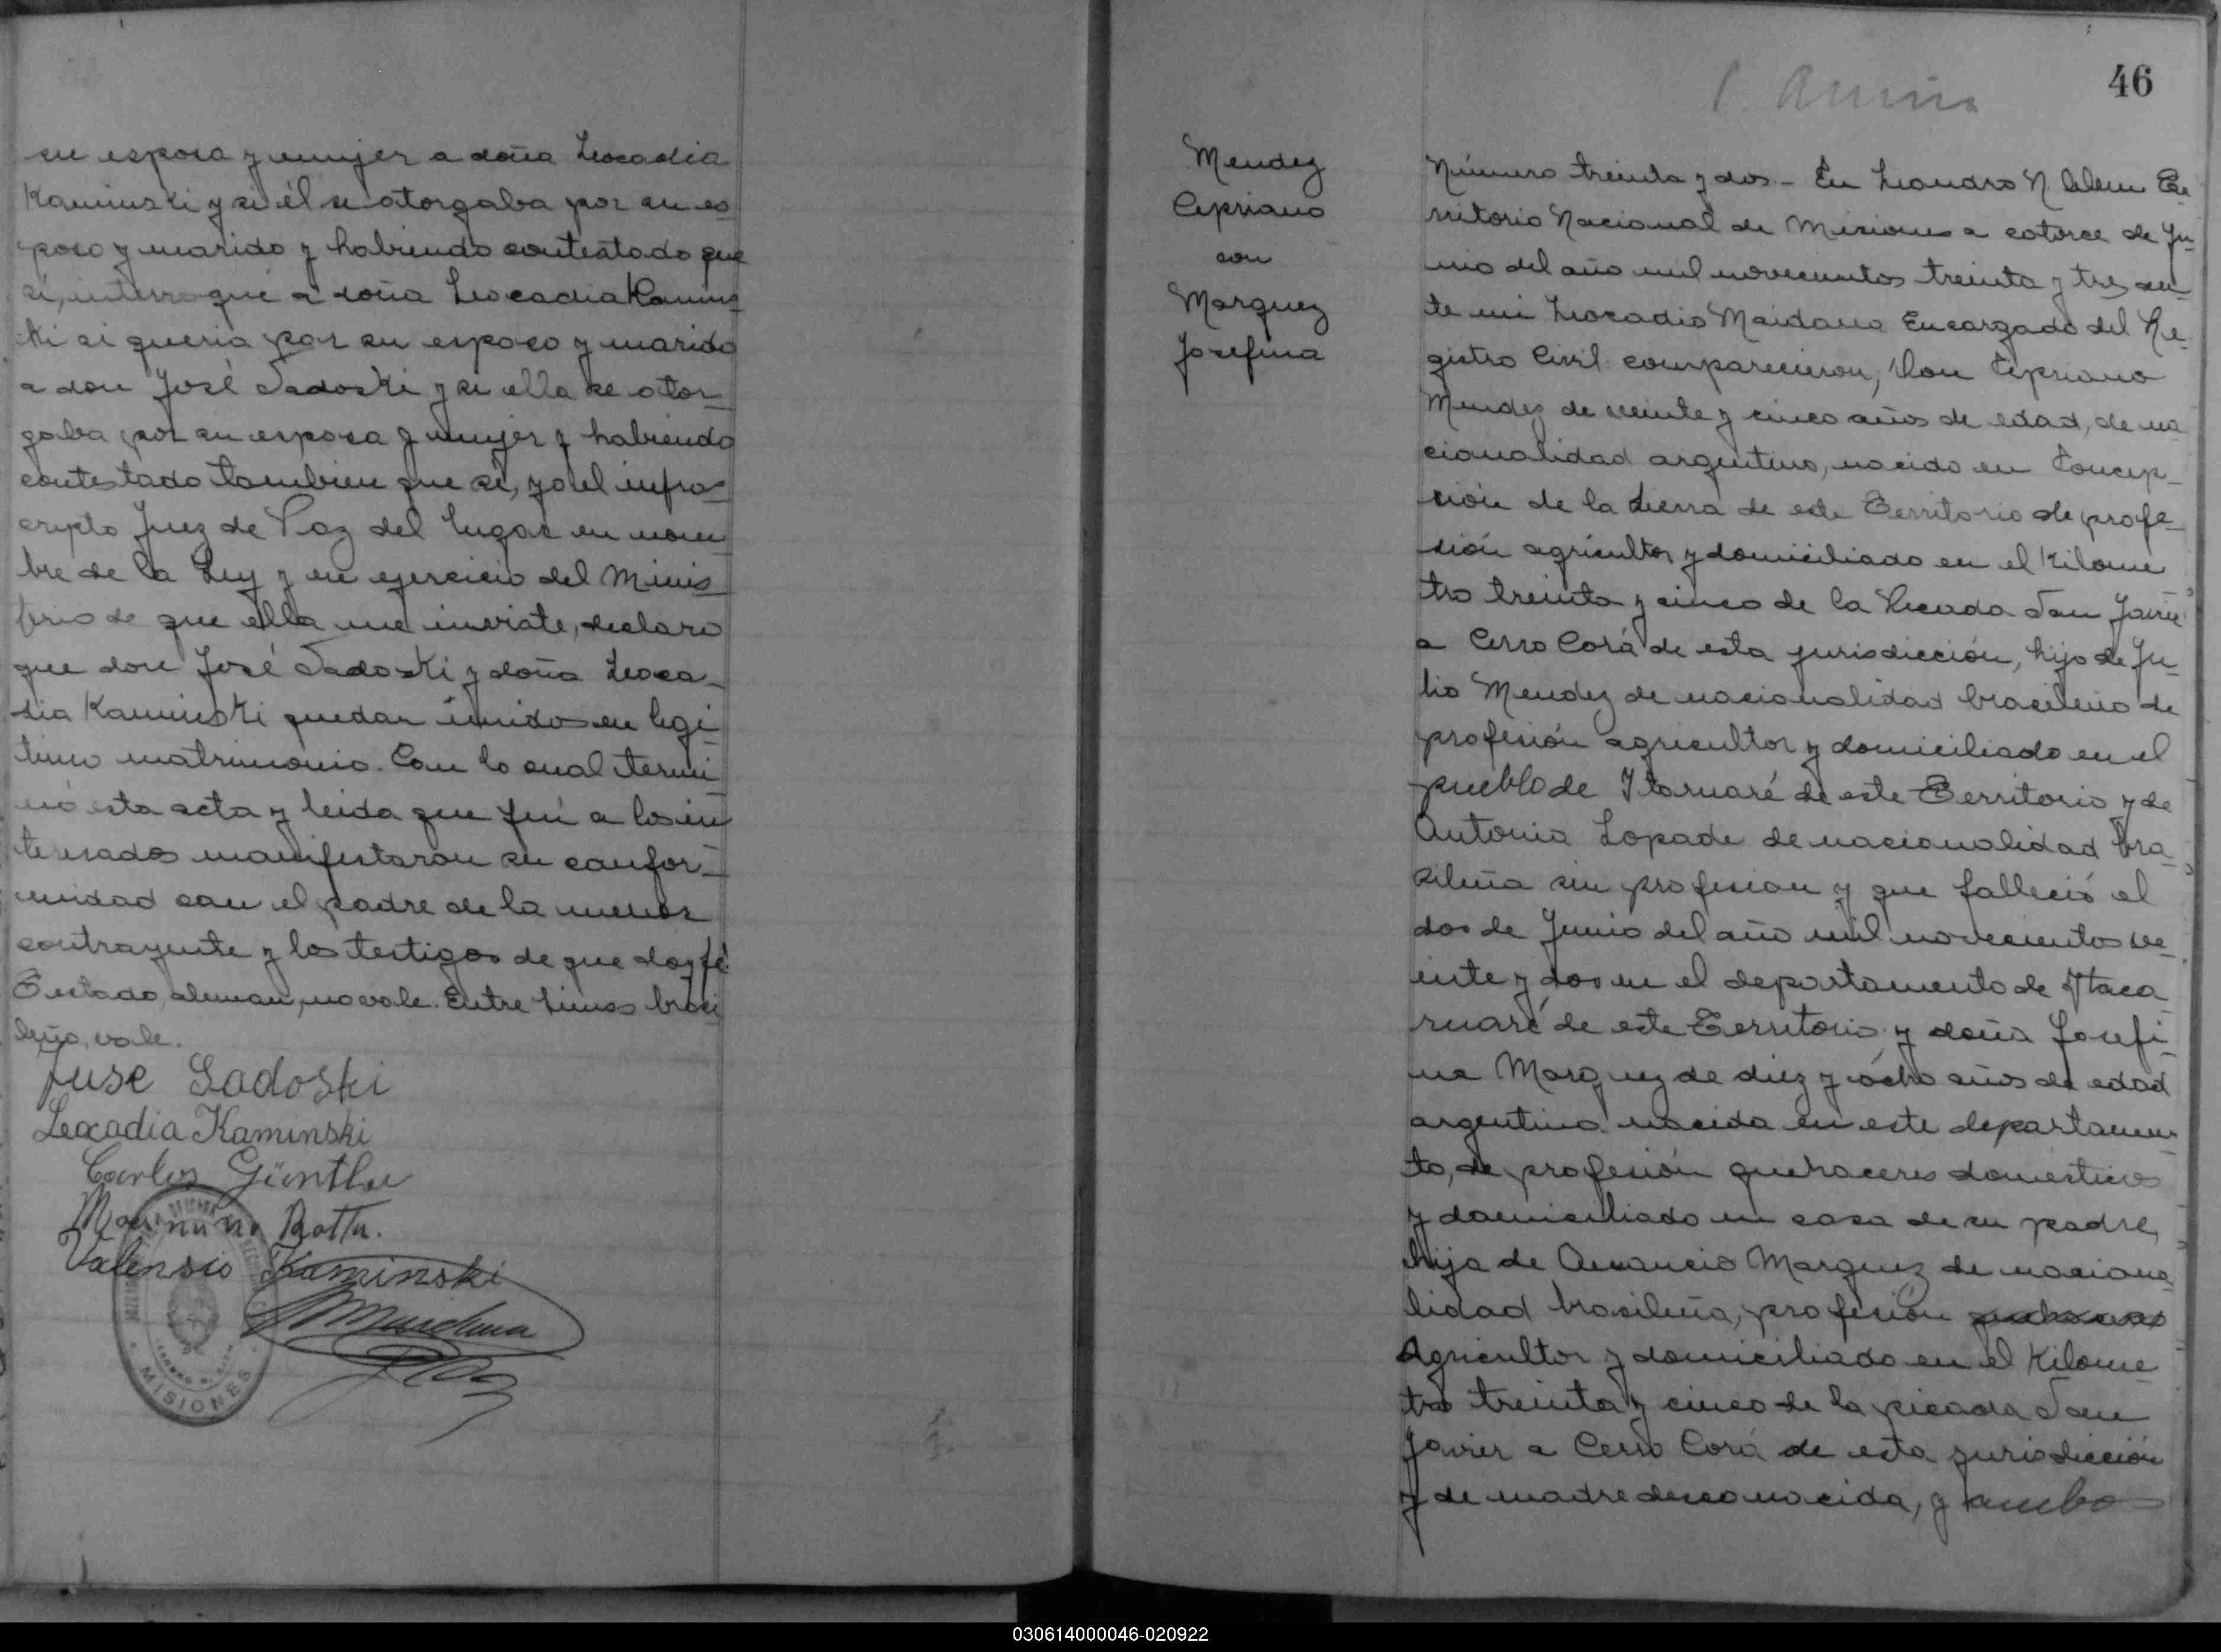 su esposa y mujer a doña Leocadia
Kaminski y si él se otorgaba por su es-
poso y marido y habiendo contestado que
sí, interrogué a doña Leocadia Kamins-
ki si queria por su esposo y marido
a don José Sadoski y si ella se otor-
gaba por su esposa y mujer y habiendo
contestado tambien que sí, yo el infras-
cripto Juez de Paz del lugar en nom-
bre de la Ley y en ejercicio del Minis-
terio de que ella me inviste, declaro
que don José Sadoski y doña Leoca-
dia Kaminski quedan únidos en legí-
timo matrimonio. Con lo cual termi-
nó esta acta y leida que fué a los in-
teresados manifestaron su confor-
midad con el padre de la menor
contrayente y los testigos de que doy fé.
Testado, aleman, no vale. Entre lineas brasi-
leño, vale.
Juse Sadoski
Leocadia Kaminski
Carlos Günther
Valensio Kaminski
MMaidana
MISIONES
46
Mendez
Cipriano
con
Marquez
Josefina
Número treinta y dos - En Leandro N Alem Te-
rritorio Nacional de Misiones a catorce de Ju-
nio del año mil novecientos treinta y tres, an-
te mi Leocadio Maidana Encargado del Re-
gistro Civil comparecieron, Don Cipriano
Mendez de veinte y cinco años de edad, de na-
cionalidad argentino, nacido en Concep-
ción de la Sierra de este Territorio de profe-
sión agricultor y domiciliado en el Kilome
tro treinta y cinco de la Picada San Javier
a Cerro Corá de esta jurisdicción, hijo de Ju-
lio Mendez de nacionalidad brasileño de
profesión agricultor y domiciliado en el
pueblo de Itaruaré de este Territorio y de
Antonia Lopade de nacionalidad bra-
sileña sin profesion y que falleció el
dos de Junio del año mil novecientos ve-
inte y dos en el departamento de Itaca-
ruaré de este Territorio y doña Josefi-
na Marquez de diez y ócho años de edad
argentina nacida en este departamen-
to, de profesión quehaceres domésticos
y domiciliado en casa de su padre,
hija de Amancio Marquez de naciona-
lidad brasileña, profesión
Agricultor y domiciliado en el Kilome-
tro treinta y cinco de la picada San
Javier a Cerro Corá de esta jurisdicción
y de madre desconocida, y ambos
030614000046-020922